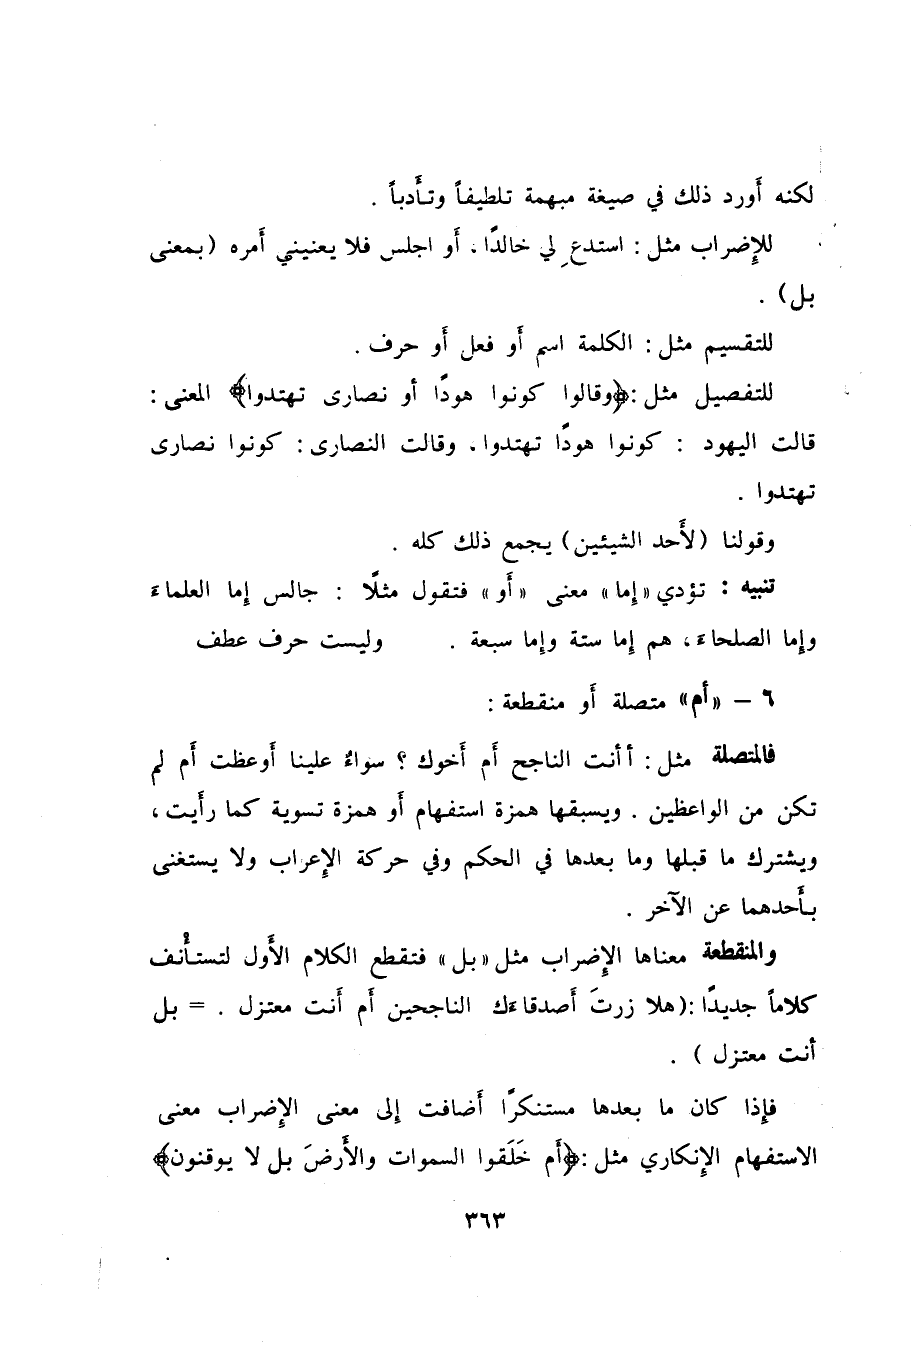 لكنه أورد ذلك في صيغة مبهمة تلطيفاً وتأدباً .
للإضراب مثل : استدعِ لي خالدًا ، أو اجلس فلا يعنيني أمره (بمعنى
بل) .
للتقسيم مثل : الكلمة اسم أو فعل أو حرف .
للتفصيل مثل :﴿وقالوا كونوا هودًا أو نصارى تهتدوا﴾ المعنى :
قالت اليهود : كونوا هودًا تهتدوا ، وقالت النصارى : كونوا نصارى
تهتدوا .
وقولنا (لأحد الشيئين) يجمع ذلك كله .
تنبيه : تؤدي «إما» معنى «أو» فتقول مثلًا : جالس إما العلماءَ
وإما الصلحاءَ ، هم إما ستة وإما سبعة . وليست حرف عطف
٦ – «أم» متصلة أو منقطعة :
فالمتصلة مثل : أأنت الناجح أم أخوك ؟ سواءٌ علينا أوعظت أم لم
تكن من الواعظين . ويسبقها همزة استفهام أو همزة تسوية كما رأيت ،
ويشترك ما قبلها وما بعدها في الحكم وفي حركة الإعراب ولا يستغنى
بأحدهما عن الآخر .
والمنقطعة معناها الإضراب مثل «بل» فتقطع الكلام الأول لتستأنف
كلاماً جديدًا :(هلا زرتَ أصدقاءَك الناجحين أم أنت معتزل . = بل
أنت معتزل ) .
فإذا كان ما بعدها مستنكرًا أضافت إلى معنى الإضراب معنى
الاستفهام الإنكاري مثل :﴿أم خَلَقوا السموات والأرضَ بل لا يوقنون﴾
٣٦٣